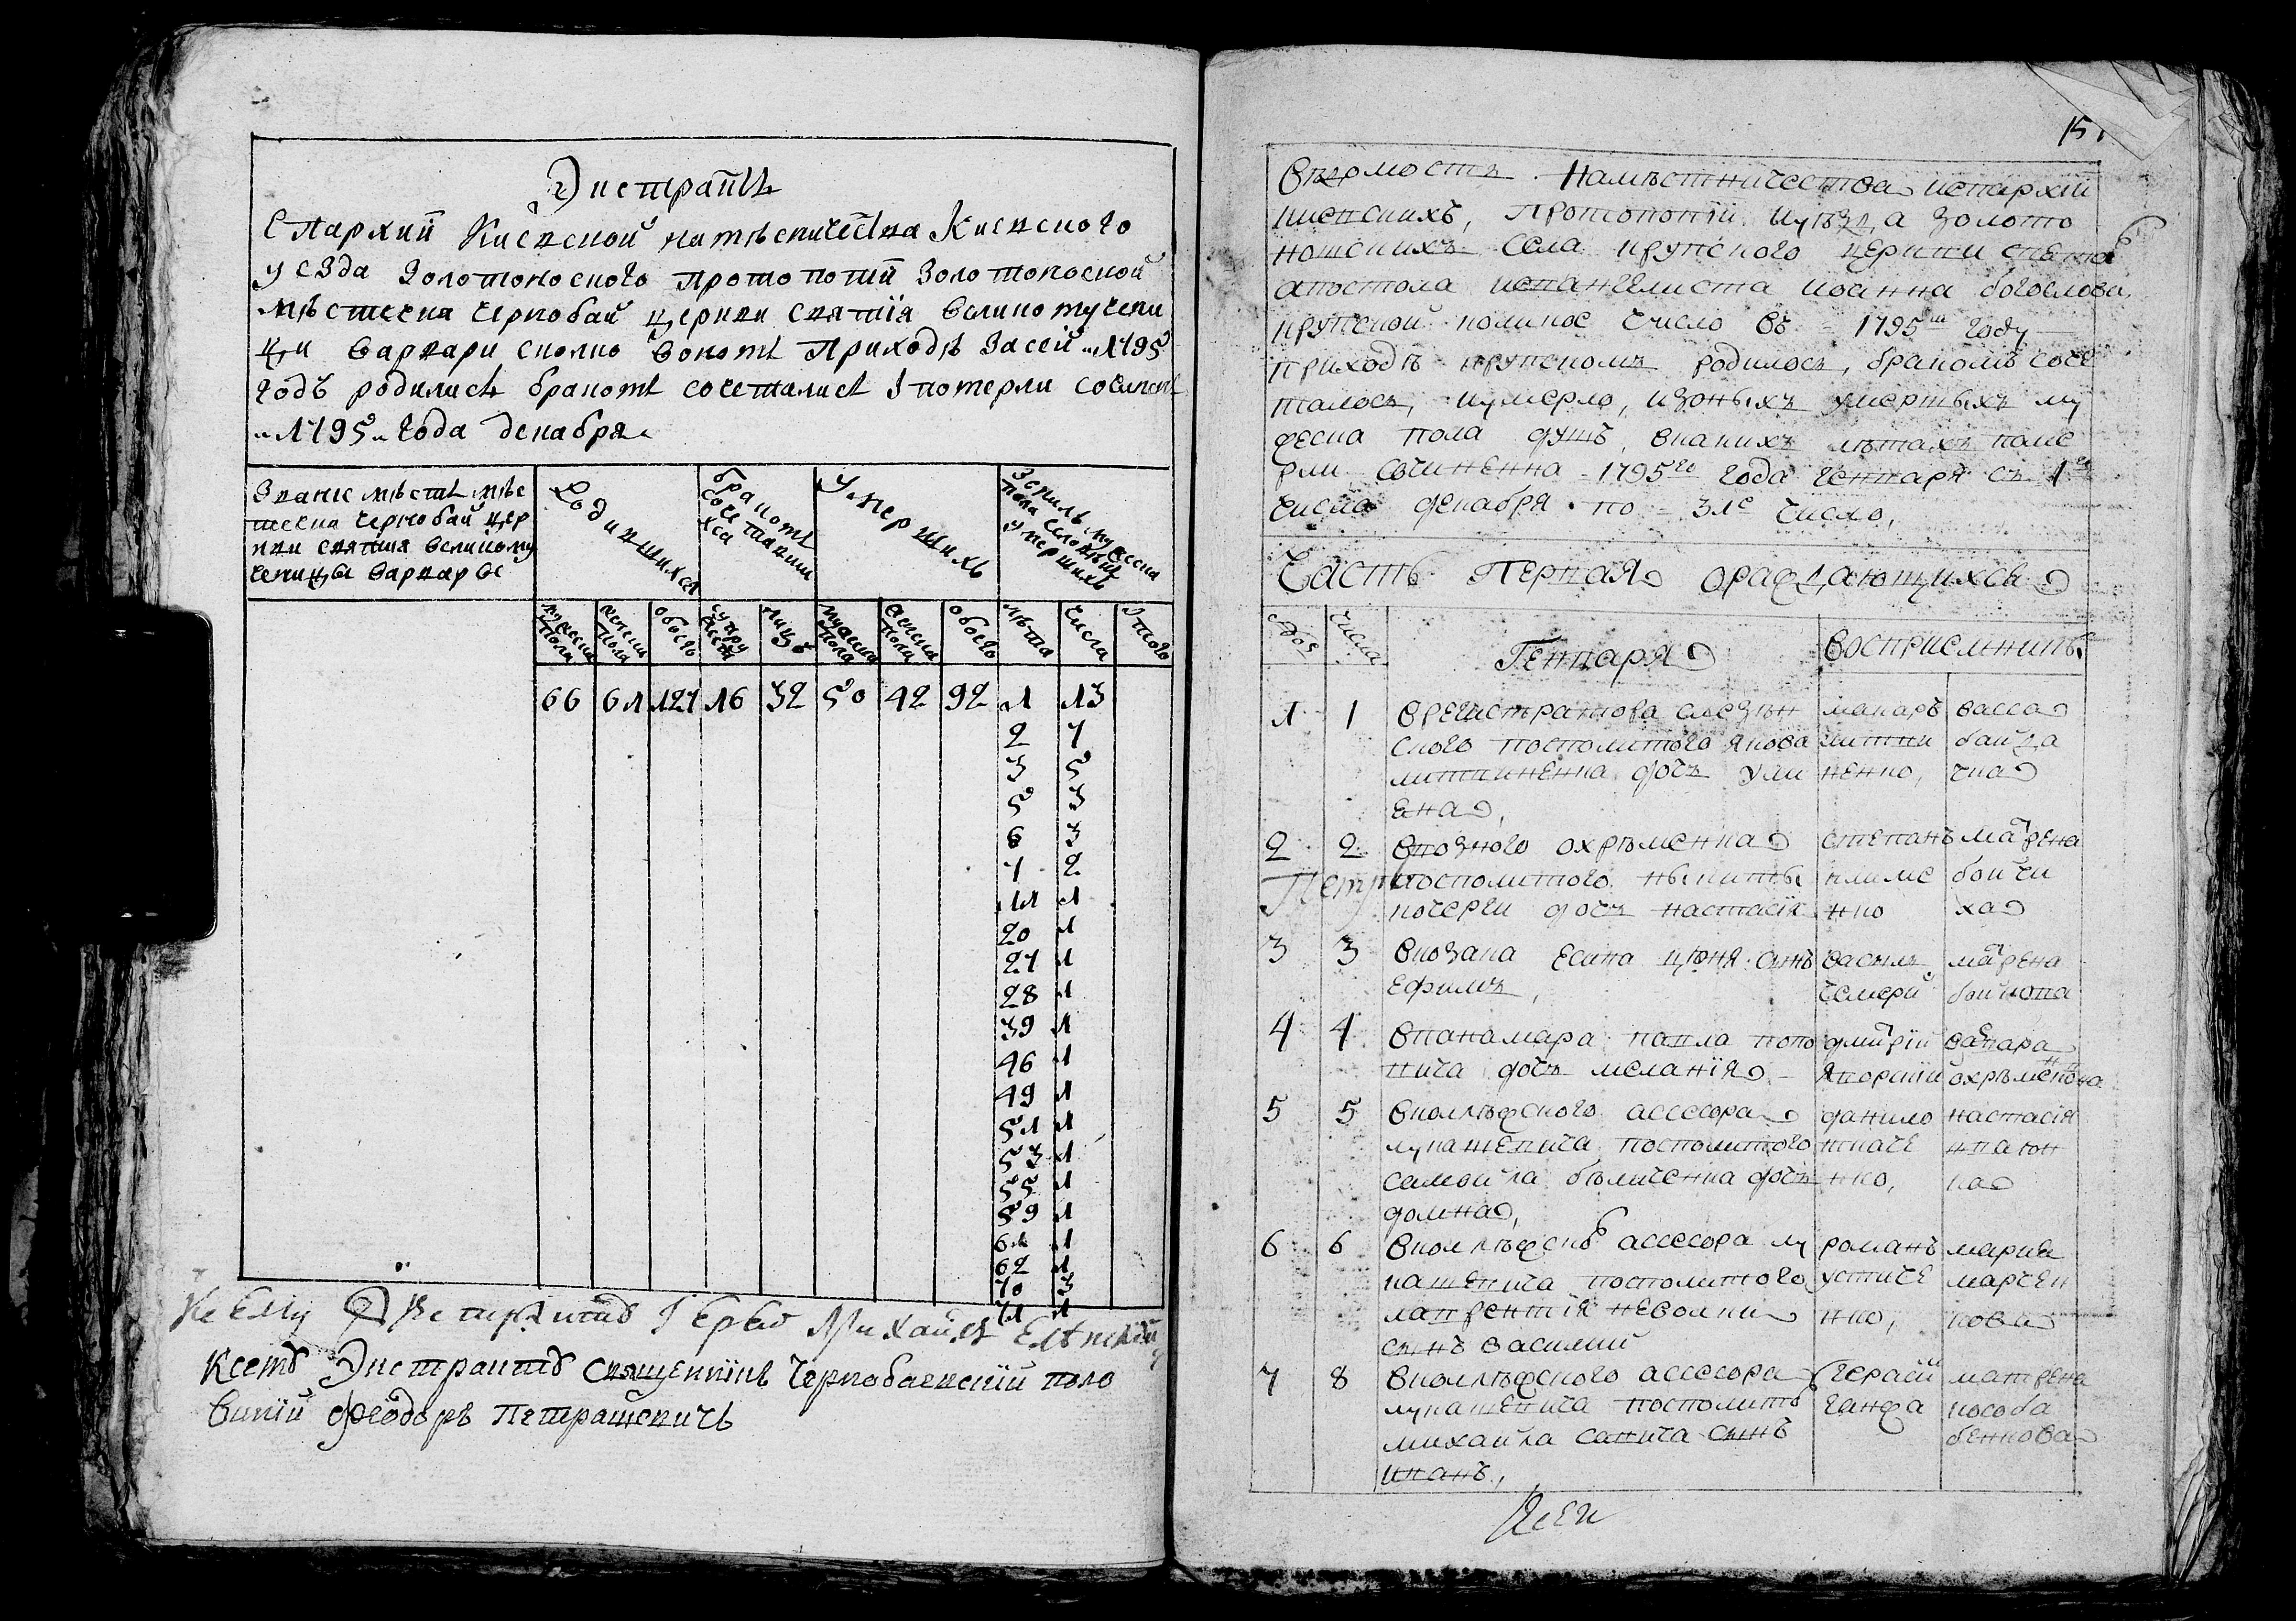 Экстрактъ
Епархии Киевской намѣсничества Киевского
уезда Золотоноского протопопии Золотоноской
мѣстечка Чернобай церкви святия великомучени
ци Варвари сколко в ономъ приходѣ за сей 1795
годъ родилисъ бракомъ сочеталисъ и померли сочиненъ
1795 года декабря
Звание мѣстъ мѣс
течка Чернобай цер
кви святия великому
ченицы Варвары
Родившихся
бракомъ
соче тавши
хся
Умершихъ
пола
умершихъ
мужеска пола
женска пола
обоего
супру
лицъ
мужеска пола
женска пола
обоего
лѣта
числа
итого
66 61 127 16 32 50 42 92 1 13
2 7
3 5
5 3
6 3
7 2
11 1
20 1
27 1
28 1
39 1
46 1
49 1
51 1
53 1
55 1
59 1
61 1
62 1
70 3
71 1
Къ сему Экстракту Иерей Михаилъ
К сему Экстракту священникъ Чернобаевский поло
винний Феодоръ Петрашевичъ
151
Вѣдомостъ намѣстничества и епархии
киевскихъ, протопопии и уѣзда золото
ношскихъ села крупского церкви свята
апостола и евангелиста иоанна богослова,
крупской коликое число въ 1795м году
приходѣ крупскомъ родилосъ, бракомъ соче
талосъ, и умерло, и зоныхъ умертыхъ му
жеска пола душъ, в какихъ лѣтахъ поме
рли сочиненна 1795го года генваря съ 1го
числа декабря по 31е число,
Часть первая о раждающихся
числа
Генваря
восприемники
1 1 В регистратора
ского посполитого якова
литвиненка дочъ ули
ена,
макаръ
литви
ненко,
васса
байда
чка
2 2 В козного охрѣменка
посполитого никиты
кочерги дочъ настасия
степанъ
климе
нко
матрена
бойчи
ха
Петр
3 3 В козака есипа цюпя сынъ
ефимъ,
василь
чемери
матрена
бойкова
4 4 В панамара павла попо
вича дочъ мелания
дмитрий
яворский
варвара
охрѣменкова
5 5 В коллѣжского ассесора
лукашевича посполитого
самойла бѣличенка дочъ
домна,
данило
ткаче
нко,
настасия
ивахн
ка
6 6 В коллѣжского ассесора лу
кашевича посполитого
лаврентия неволки
сынъ василий
романъ
устиче
нко,
мария
марчен
кова
7 8 В коллѣжского ассесора
лукашевича посполито
михайла савича сынъ
иванъ,
герасим
ганжа
матрена
кособа
бенкова